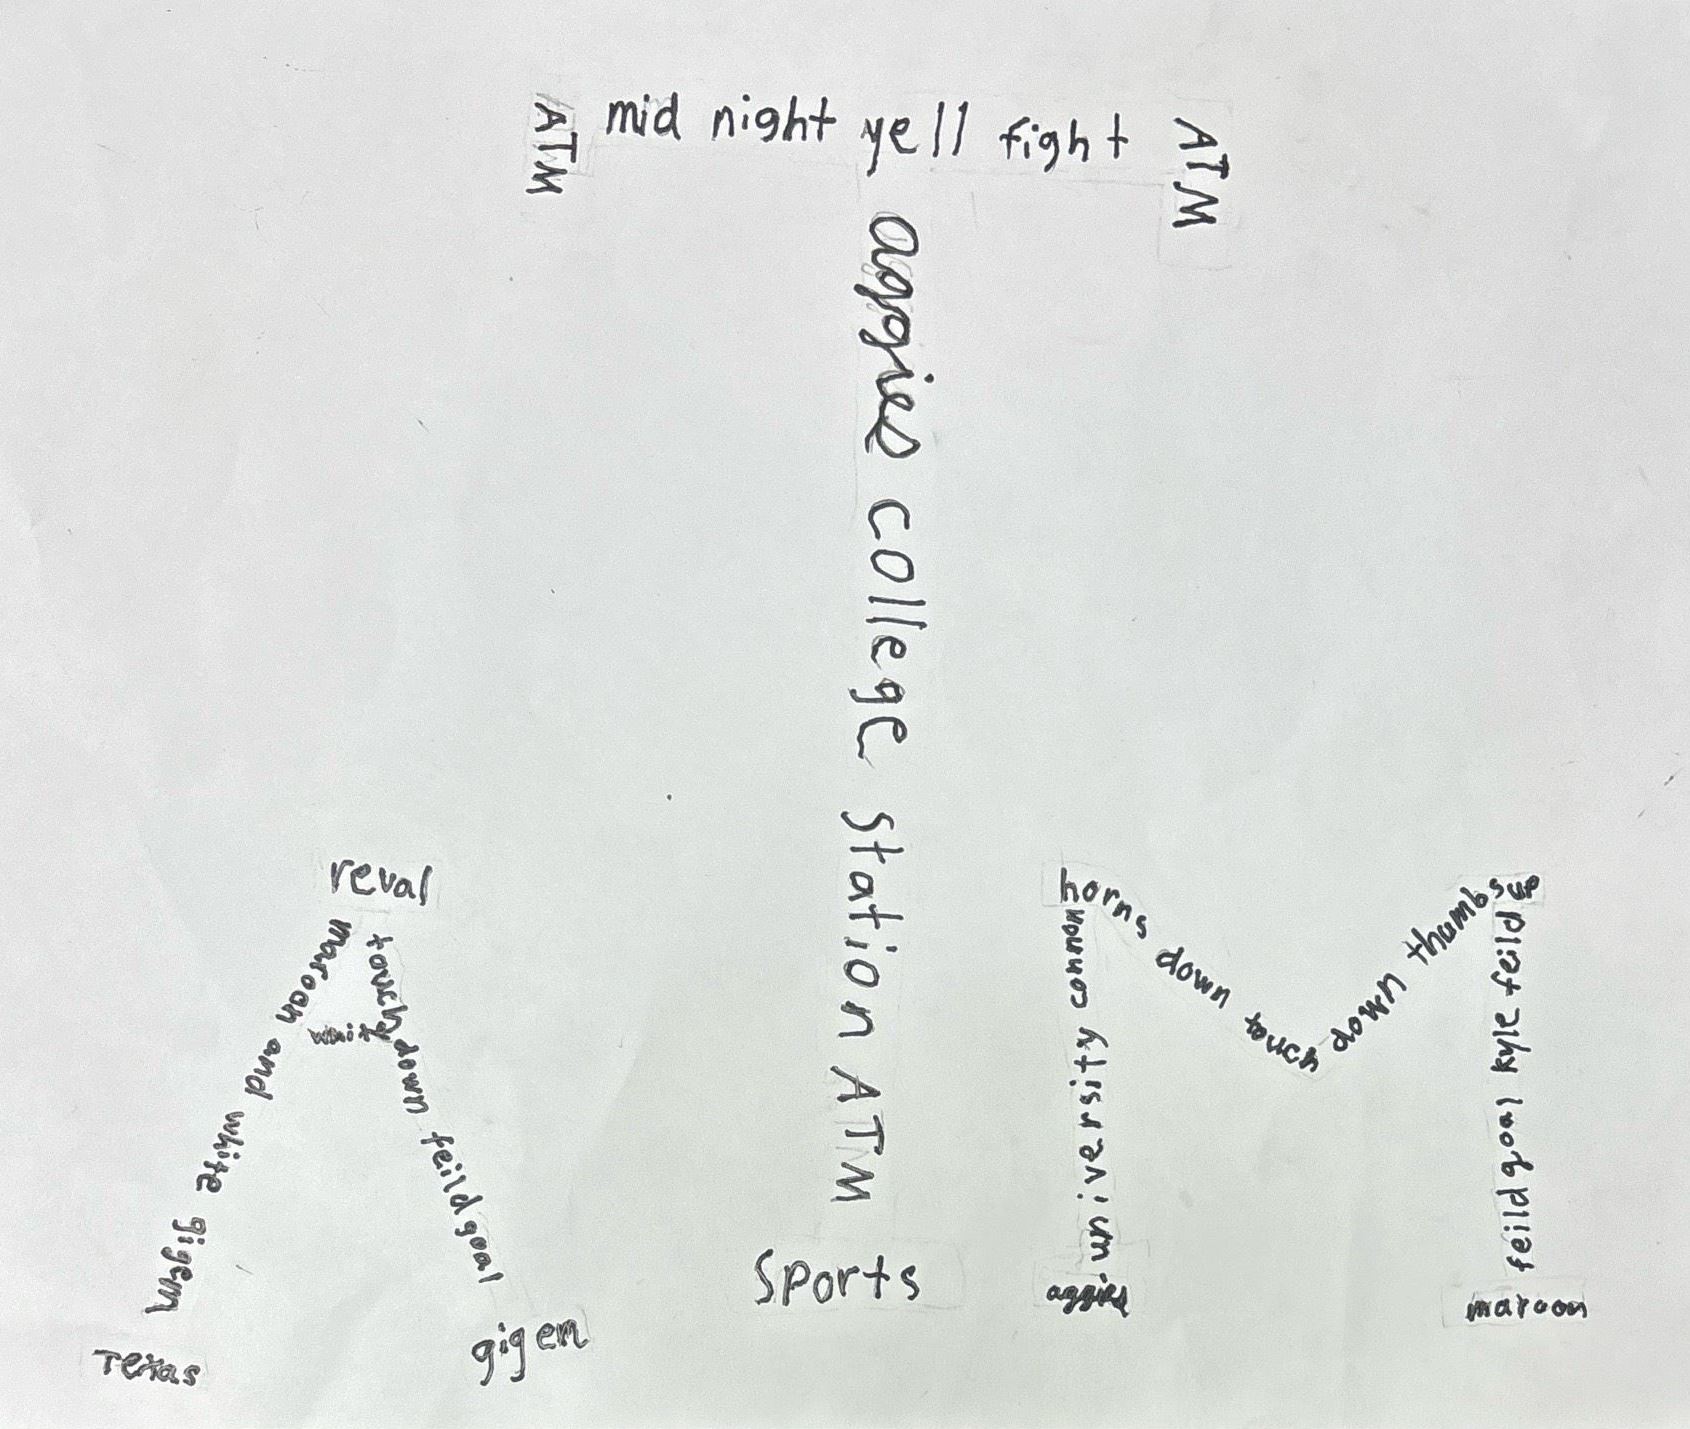 ATM mid night yell fight ATM
aggies college station ATM
sports
reval
maroon and white gigem
touch down feild goal
Texas
gigem
horns down touch down thumbs up
university common
aggies
feild goal kyle feild
maroon